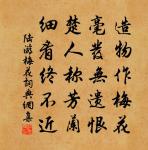 造物作梅花
毫髮無遺恨
楚人称芳蘭
細看終不近
陸游梅花詞典網集